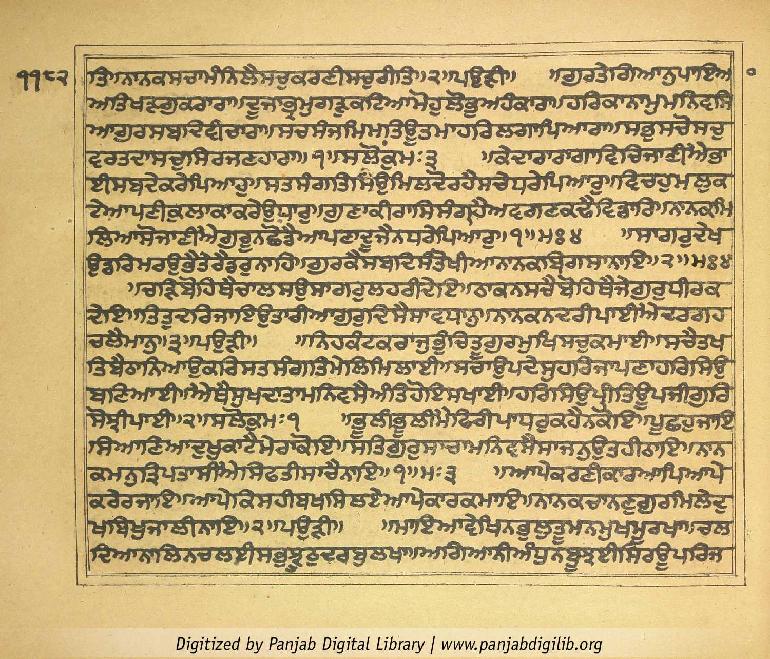 ੧੧੮੨
ਤਿ॥ਨਾਨਕਸਚਾਮੰਨਿਲੈਸਚੁਕਰਣੀਸਚੁਰੀਤਿ॥੨॥ਪਉੜੀ॥ ॥ਗੁਰਤੇਗਿਆਨੁਪਾਇਆ
ਅਤਿਖੜਗੁਕਰਾਰਾ॥ਦੂਜਾਭ੍ਰਮੁਗੜੁਕਟਿਆਮੋਹੁਲੋਭੁਅਹੰਕਾਰਾ॥ਹਰਿਕਾਨਾਮੁਮਨਿਵਸਿ
ਆਗੁਰਸਬਦਿਵੀਚਾਰਾ॥ਸਚਸੰਜਮਿਮਤਿਊਤਮਾਹਰਿਲਗਾਪਿਆਰਾ॥ਸਭੁਸਚੋਸਚੁ
ਵਰਤਦਾਸਚੁਸਿਰਜਣਹਾਰਾ॥੧॥ਸਲੋਕੁਮਃ੩ ॥ਕੇਦਾਰਾਰਾਗਾਵਿਚਿਜਾਣੀਐਭਾ
ਈਸਬਦੇਕਰੇਪਿਆਰੁ॥ਸਤਸੰਗਤਿਸਿਉਮਿਲਦੋਰਹੈਸਚੇਧਰੇਪਿਆਰੁ॥ਵਿਚਹੁਮਲੁਕ
ਟੇਆਪਣੀਕੁਲਾਕਾਕਰੇਉਧਾਰੁ॥ਗੁਣਾਕੀਰਾਸਿਸੰਗ੍ਰਹੈਅਵਗਣਕਢੈਵਿਡਾਰਿ॥ਨਾਨਕਮਿ
ਲਿਆਸੋਜਾਣੀਐਗੁਰੂਨਛੋਡੈਆਪਣਾਦੂਜੈਨਧਰੇਪਿਆਰੁ॥੧॥ਮਃ੪ ॥ਸਾਗਰੁਦੇਖ
ਉਡਰਿਮਰਉਭੈਤੇਰੈਡਰੁਨਾਹਿ॥ਗੁਰਕੈਸਬਦਿਸੰਤੋਖੀਆਨਾਨਕਬਿਗਸਾਨਾਇ॥੨॥ਮਃ੪
॥ਚੜਿਬੋਹਿਥੈਚਾਲਸਉਸਾਗਰੁਲਹਰੀਦੇਇ॥ਠਾਕਨਸਚੈਬੋਹਿਥੈਜੇਗੁਰੁਧੀਰਕ
ਦੇਇ॥ਤਿਤੁਦਰਿਜਾਇਉਤਾਰੀਆਗੁਰੁਦਿਸੈਸਾਵਧਾਨੁ॥ਨਾਨਕਨਦਰੀਪਾਈਐਦਰਗਹ
ਚਲੈਮਾਨੁ॥੩॥ਪਉੜੀ॥ ॥ਨਿਹਕੰਟਕਰਾਜੁਭੁੰਚਿਤੂਗੁਰਮੁਖਿਸਚੁਕਮਾਈ॥ਸਚੈਤਖ
ਤਿਬੈਠਾਨਿਆਉਕਰਿਸਤਸੰਗਤਿਮੇਲਿਮਿਲਾਈ॥ਸਚਾਉਪਦੇਸੁਹਰਿਜਾਪਣਾਹਰਿਸਿਉ
ਬਣਿਆਈ॥ਐਥੈਸੁਖਦਾਤਾਮਨਿਵਸੈਅੰਤਿਹੋਇਸਖਾਈ॥ਹਰਿਸਿਉਪ੍ਰੀਤਿਊਪਜੀਗੁਰਿ
ਸੋਝੀਪਾਈ॥੨॥ਸਲੋਕੁਮਃ੧ ॥ਭੂਲੀਭੂਲੀਮੈਫਿਰੀਪਾਧਰੁਕਹੈਨਕੋਇ॥ਪੂਛਹੁਜਾਇ
ਸਿਆਣਿਆਦੁਖੁਕਾਟੈਮੇਰਾਕੋਇ॥ਸਤਿਗੁਰੁਸਾਚਾਮਨਿਵਸੈਸਾਜਨੁਉਤਹੀਠਾਇ॥ਨਾਨ
ਕਮਨੁਤ੍ਰਿਪਤਾਸੀਐਸਿਫਤੀਸਾਚੈਨਾਇ॥੧॥ਮਃ੩ ॥ਆਪੇਕਰਣੀਕਾਰਆਪਿਆਪੇ
ਕਰੇਰਜਾਇ॥ਆਪੇਕਿਸਹੀਬਖਸਿਲਏਆਪੇਕਾਰਕਮਾਇ॥ਨਾਨਕਚਾਨਣੁਗੁਰਮਿਲੇਦੁ
ਖਬਿਖੁਜਾਲੀਨਾਇ॥੨॥ਪਉੜੀ॥ ॥ਮਾਇਆਵੇਖਿਨਭੁਲੁਤੂਮਨਮੁਖਮੂਰਖਾ॥ਚਲ
ਦਿਆਨਾਲਿਨਚਲਈਸਭੁਝੂਠੁਦਰਬੁਲਖਾ॥ਅਗਿਆਨੀਅੰਧੁਨਬੂਝਈਸਿਰਊਪਰਿਜ
Digitized by Panjab Digital Library | www.panjabdigilib.org